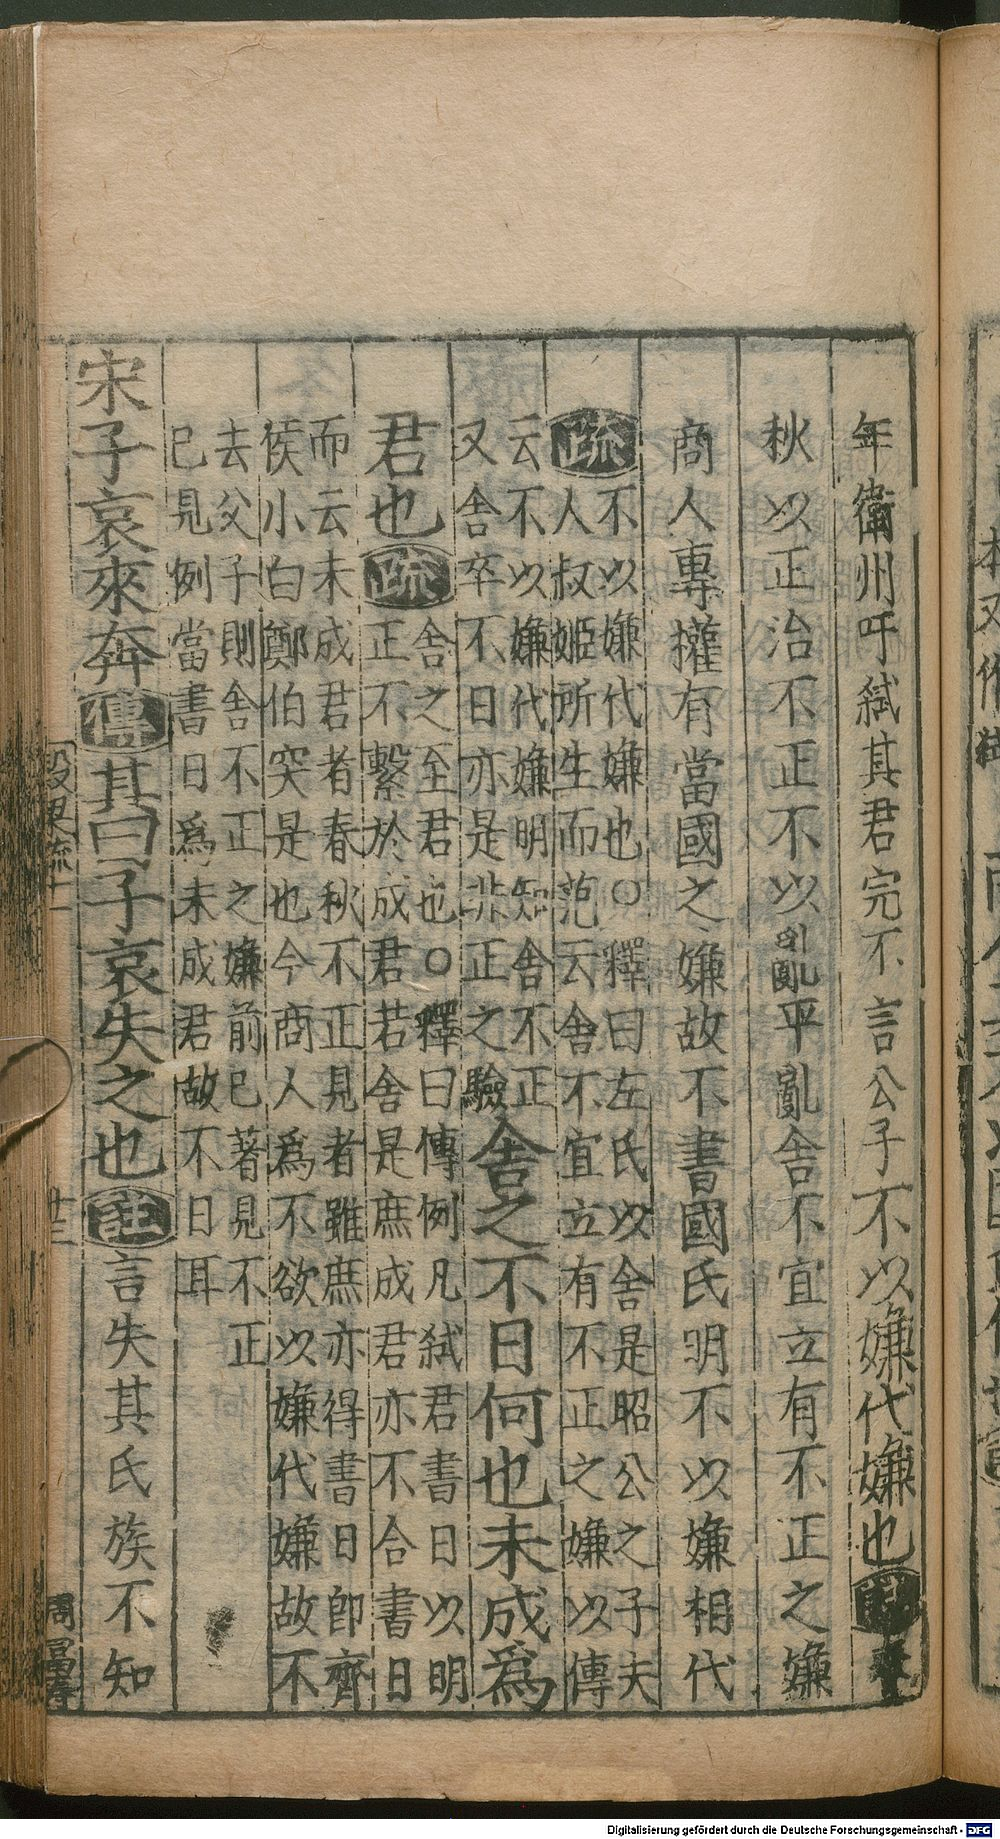 年衞州吁弑其君完不言公子不以嫌代嫌也註春
秋以正治不正不以亂平亂舍不宜立有不正之嫌
商人專權有當國之嫌故不書國氏明不以嫌相代
疏
不以嫌代嫌也○釋曰左氏以舍是昭公之子夫
人叔姬所生而范云舍不宜立有不正之嫌以傳
云不以嫌代嫌明知舍不正
又舍卒不日亦是非正之驗
舍之不日何也未成爲
君也疏
舍之至君也○釋曰傳例凡弑君書日以明
正不繫於成君若舍是庶成君亦不合書日
而云未成君者春秋不正見者雖庶亦得書日即齊
侯小白鄭伯突是也今商人爲不欲以嫌代嫌故不
去父子則舍不正之嫌前已著見不正
已見例當書日爲未成君故不日耳
宋子哀來奔傳其曰子哀失之也註言失其氏族不知
廿三
Digitalisierung gefördert durch die Deutsche Forschungsgemeinschaft - DFG